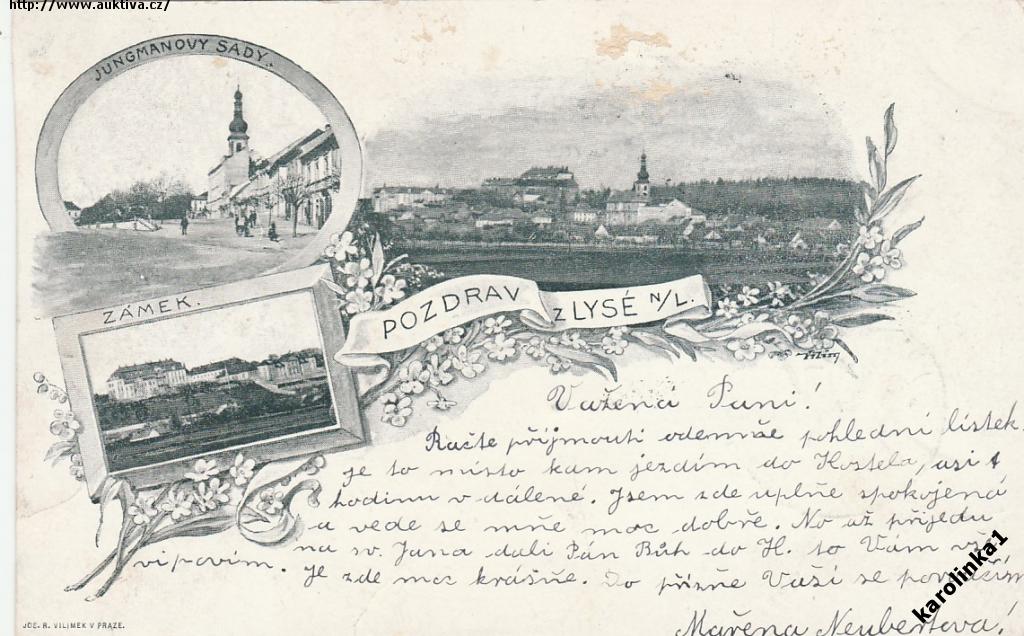 http://www.auktiva.cz/
JUNGMANOVY SADY.
ZÁMEK.
POZDRAV Z LYSÉ N/L.
Važená Paní!
Račte přijmouti odemňe pohlední lístek.
je to místo kam jezdím do Kostela, asi 1
hodinu v dálené. Jsem zde uplňe spokojená
a vede se mňe moc dobře. No až přijedu
na sv. Jana dali Pán Bůh do H. to Vám vše
vipovím. Je zde moc krásňe. Do přízňe Vaší se
Mařena Neubertová!
JOS. R. VILÍMEK V PRAZE.
karolinka1